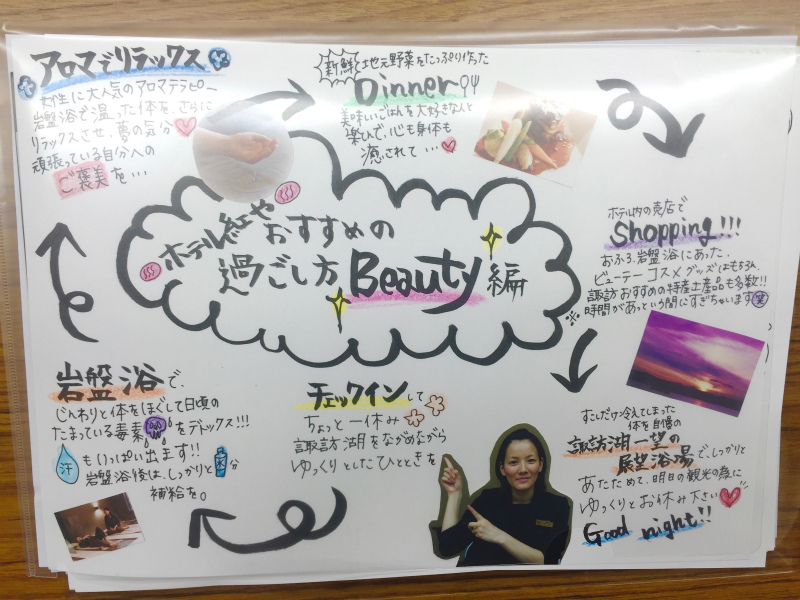 アロマでリラックス
女性に大人気のアロマテラピー
岩盤浴で温った体を、さらに
リラックスさせ、夢の気分
頑張っている自分への
ご褒美を…
新鮮 地元野菜をたっぷり作った
Dinner
美味しいごはんを大好きな人と
楽しんで、心も身体も
癒されて…
ホテル紅や おすすめの
過ごし方 Beauty 編
ホテル内の売店で
Shopping!!!
おふろ、岩盤浴にあった、
ビューティー コスメグッズはもちろん
諏訪おすすめの特産土産品も多数!!
時間があっという間にすぎちゃいます 笑
岩盤浴で、
じんわりと体をほぐして日頃の
たまっている毒素をデトックス!!!
汗もいっぱい出ます!!
岩盤浴後は、しっかりと水分
補給を。
チェックインして
ちょっと一休み
諏訪湖をながめながら
ゆっくりとしたひとときを
すこしだけ冷えてしまった
体を自慢の
諏訪湖一望の
展望浴場で、しっかりと
あたためて、明日の観光の為に
ゆっくりとお休み下さい
Good night!!